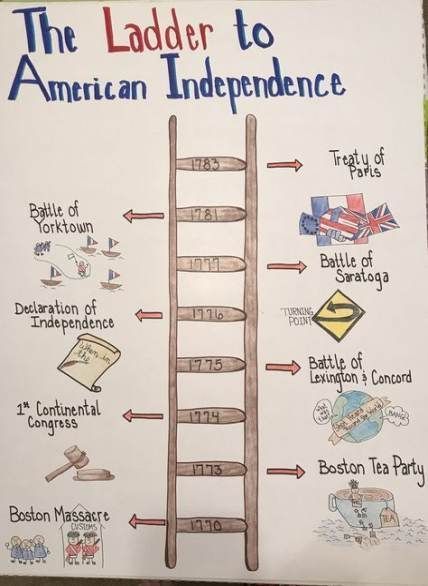 The Ladder to
American Independence
1783
Treaty of
Paris
1781
Battle of
Yorktown
1777
Battle of
Saratoga
TURNING
POINT
1776
Declaration of
Independence
When in
the
1775
Battle of
Lexington & Concord
Shot heard
around the world
BANG!
1774
1st Continental
Congress
1773
Boston Tea Party
TEA
1770
Boston Massacre
CUSTOMS